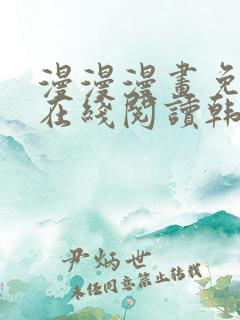 漫漫漫畫免
在綫閱讀韩
尹炳世
未经同意禁止转载